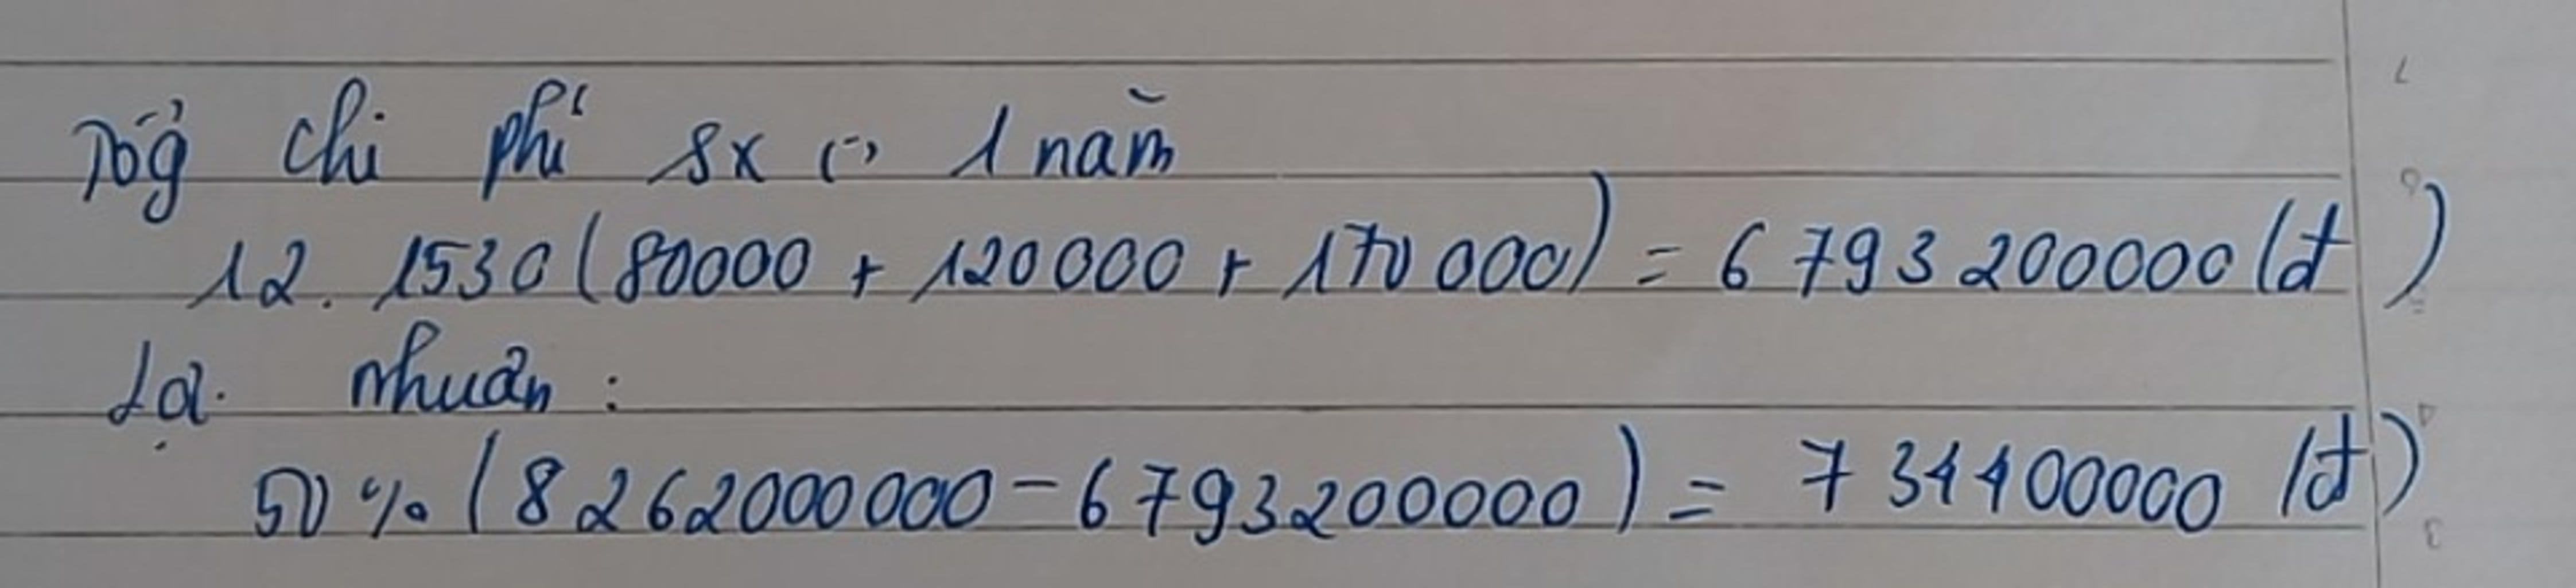 Tổg chi phí sx (:) 1 năm
12. 1530 (80000 + 120000 + 170000) = 6793200000 (đ)
Lợi nhuận :
50% (8262000000 - 6793200000) = 734400000 (đ)